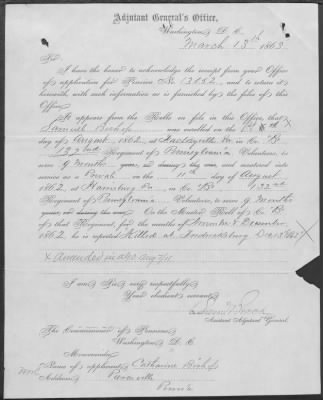 Adjutant General's Office,
Washington, D. C.
March 13th 1863
Sir:
I have the honor to acknowledge the receipt from your Office
of application for Pension No. 13652, and to return it
herewith, with such information as is furnished by the files of this
Office.
It appears from the Rolls on file in this Office, that
Samuel Bishop was enrolled on the
day of August, 1862, at in Co. "B"
132nd Regiment of Pennsylvania Volunteers, to serve
9 months, and mustered into
service as a Private on the 11th day of August
1862, at Harrisburg Pa in Co. "B" 132nd
Regiment of Pennsylvania Volunteers, to serve 9 months
On the Muster Roll of Co. B
of that Regiment, for the months of November & December
1862, he is reported Killed at Fredericksburg Dec 13 1862
x Amended
I am, Sir, very respectfully,
Your obedient servant,
Assistant Adjutant General.
The Commissioner of Pensions,
Washington, D. C.
Memoranda
Name of applicant, Catharine Bishop
Address,
Penn'a